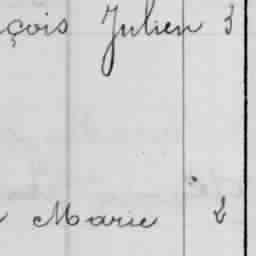 çois Julien 3
Marie 2